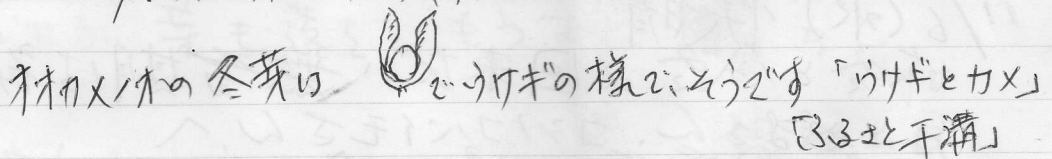 オオカメノキの冬芽は でウサギの様で、そうです「ウサギとカメ」
「ふるさと干溝」